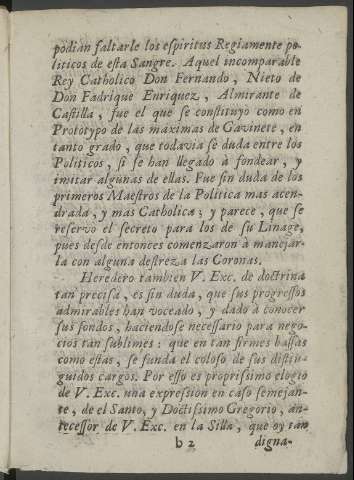 podian faltarle los eſpiritus Regiamente po-
liticos de eſta Sangre. Aquel incomparable
Rey Catholico Don Fernando, Nieto de
Don Fadrique Enriquez, Almirante de
Caſtilla, fue el que ſe conſtituyo como en
Prototypo de las maximas de Gavinete, en
tanto grado, que todavia ſe duda entre los
Politicos, ſi ſe han llegado à fondear, y
imitar algunas de ellas. Fue ſin duda de los
primeros Maeſtros de la Politica mas acen-
drada, y mas Catholica; y parece, que ſe
reſervo el ſecreto para los de ſu Linage,
pues deſde entonces comenzaron à manejar-
la con alguna deſtreza las Coronas.
Heredero tambien V. Exc. de doctrina
tan preciſa, es ſin duda, que ſus progreſſos
admirables han voceado, y dado à conocer
ſus fondos, haciendoſe neceſſario para nego-
cios tan ſublimes: que en tan firmes baſſas
como eſtas, ſe funda el coloſo de ſus diſtin-
guidos cargos. Por eſſo es propriſsimo elogio
de V. Exc. una expreſsion en caſo ſemejan-
te, de el Santo, y Doctiſsimo Gregorio, an-
teceſſor de V. Exc. en la Silla, que oy tan
b 2 digna-